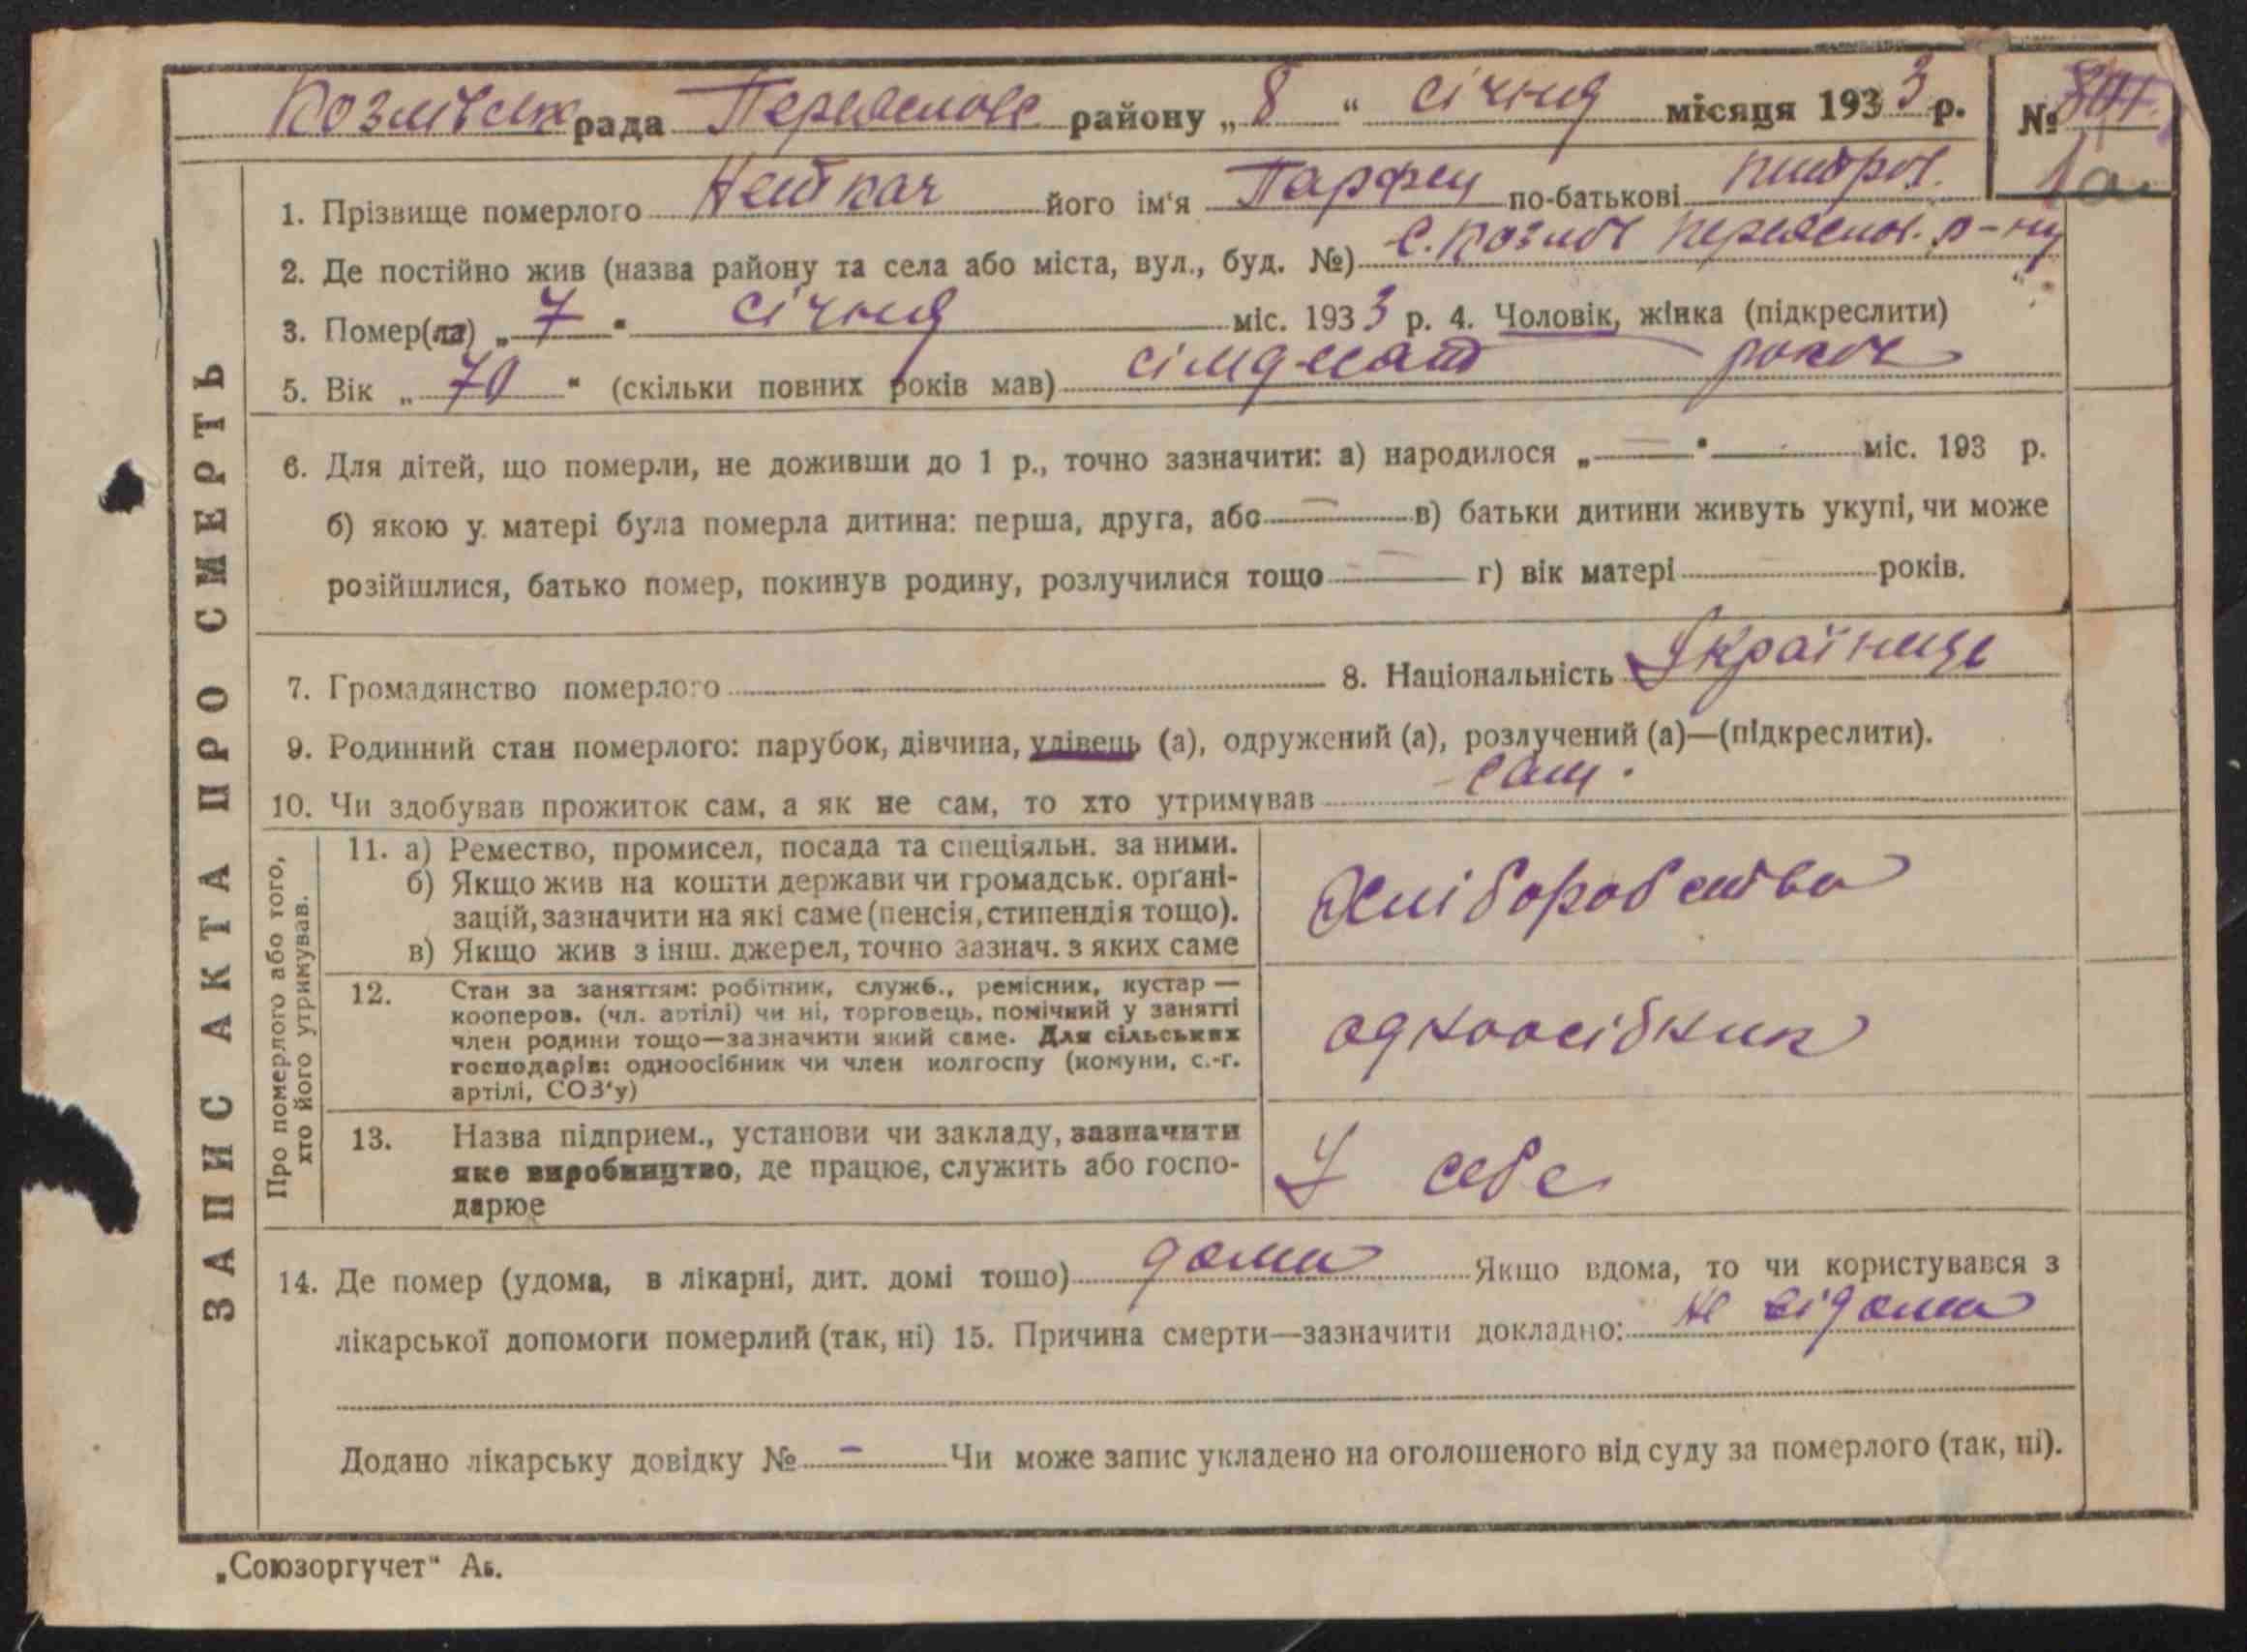 Козлівськ рада Переяслівс району „8“ січня місяця 1933 р. №
1а
ЗАПИС АКТА ПРО СМЕРТЬ
1. Прізвище померлого його ім'я Парфен по-батькові
2. Де постійно жив (назва району та села або міста, вул., буд. №) с. Козлів Переяслов. р-ну
3. Помер(ла) „7“ січня міс. 1933 р. 4. Чоловік, жінка (підкреслити)
5. Вік „70“ (скільки повних років мав) сімдесят років
6. Для дітей, що померли, не доживши до 1 р., точно зазначити: а) народилося „—“ — міс. 193 р.
б) якою у матері була померла дитина: перша, друга, або — в) батьки дитини живуть укупі, чи може
розійшлися, батько помер, покинув родину, розлучилися тощо — г) вік матері — років.
7. Громадянство померлого 8. Національність Українець
9. Родинний стан померлого: парубок, дівчина, удівець (а), одружений (а), розлучений (а)—(підкреслити).
10. Чи здобував прожиток сам, а як не сам, то хто утримував сам.
Про померлого або того,
хто його утримував.
11. а) Ремество, промисел, посада та спеціяльн. за ними.
б) Якщо жив на кошти держави чи громадськ. органі-
зацій, зазначити на які саме (пенсія, стипендія тощо).
в) Якщо жив з інш. джерел, точно зазнач. з яких саме
Хліборобство
12. Стан за заняттям: робітник, служб., ремісник, кустар —
кооперов. (чл. артілі) чи ні, торговець, помічний у занятті
член родини тощо—зазначити який саме. Для сільських
господарів: одноосібник чи член колгоспу (комуни, с.-г.
артілі, СОЗ'у)
одноосібник
13. Назва підприєм., установи чи закладу, зазначити
яке виробництво, де працює, служить або госпо-
дарює
У себе
14. Де помер (удома, в лікарні, дит. домі тощо) дома Якщо вдома, то чи користувався з
лікарської допомоги померлий (так, ні) 15. Причина смерти—зазначити докладно: не відома
Додано лікарську довідку № — Чи може запис укладено на оголошеного від суду за померлого (так, ні).
„Союзоргучет“ Ав.